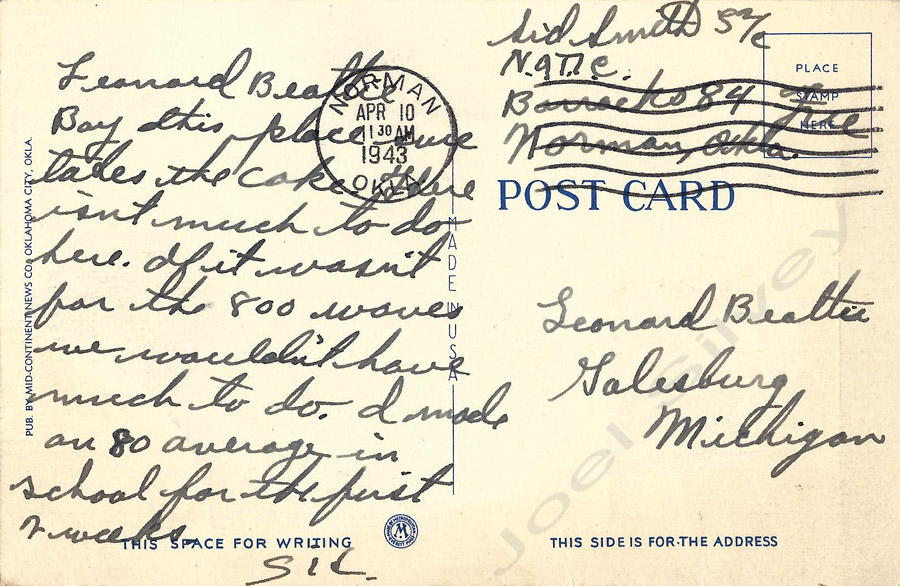 Sid Smith S2/c
N.A.T.T.C.
Barracks 84
Norman, Okla.
Free
PLACE
STAMP
HERE
NORMAN
APR 10
11 30 AM
1943
OKLA
POST CARD
Leonard Beattie
Boy this place sure
takes the cake there
isn't much to do
here. If it wasn't
for the 800 waves
we wouldn't have
much to do. I made
an 80 average in
school for the first
2 weeks.
Sid.
Leonard Beattie
Galesburg
Michigan
PUB. BY MID-CONTINENT NEWS CO., OKLAHOMA CITY, OKLA.
MADE IN USA
THIS SPACE FOR WRITING
M
THIS SIDE IS FOR THE ADDRESS
Joel Silvey